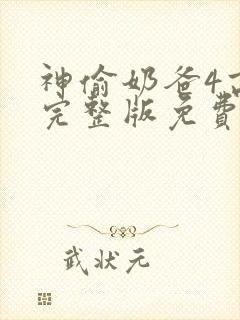 神偷奶爸4高
完整版免費
武状元